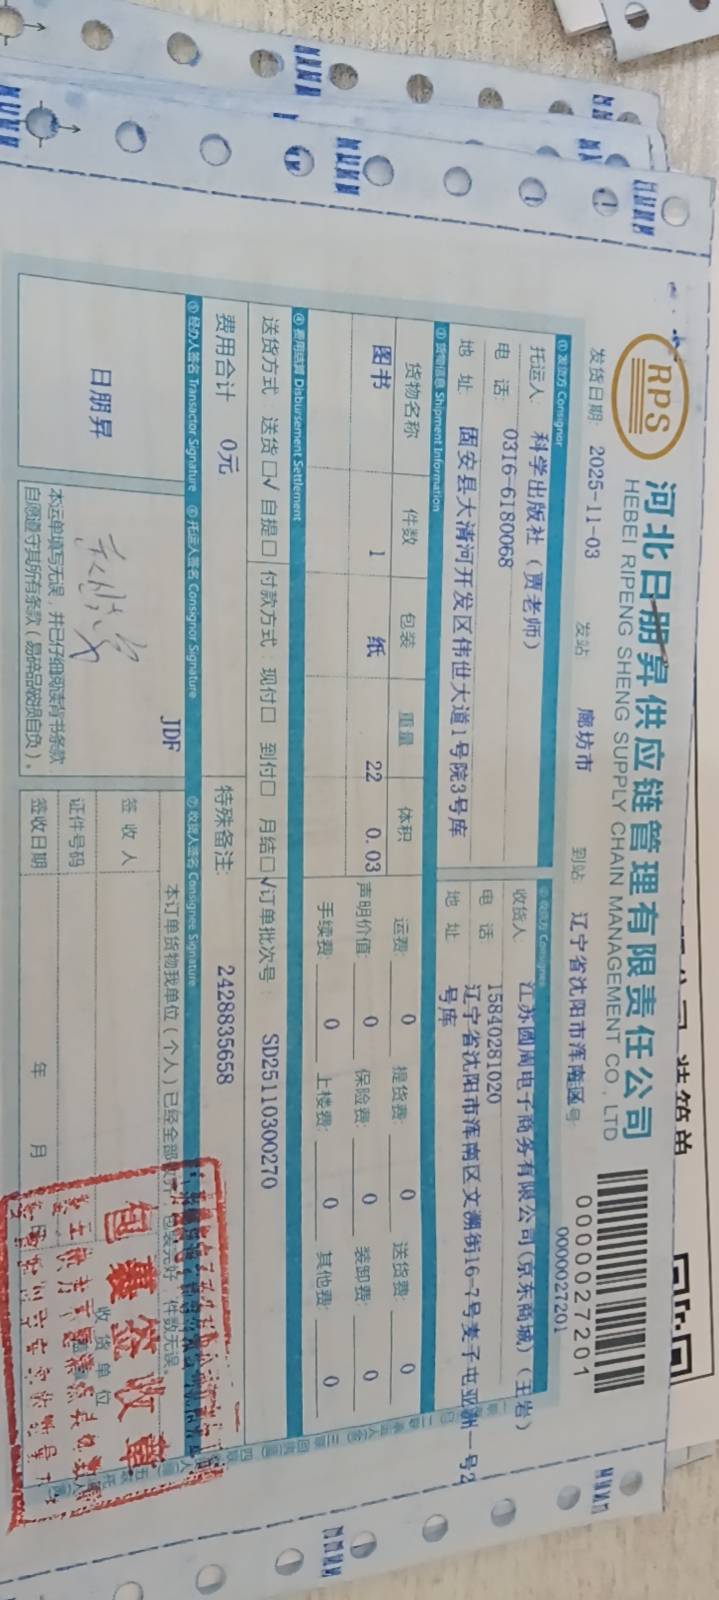 RPS
河北日朋昇供应链管理有限责任公司
HEBEI RIPENG SHENG SUPPLY CHAIN MANAGEMENT CO., LTD
0000027201
发货日期: 2025-11-03 发站 廊坊市 到站 辽宁省沈阳市浑南区 号 0000027201
① 发货方 Consignor
托运人: 科学出版社（贾老师）
电 话: 0316-6180068
地 址: 固安县大清河开发区伟世大道1号院3号库
② 收货方 Consignee
收货人 江苏圆周电子商务有限公司(京东商城)（王岩）
电 话 15840281020
地 址 辽宁省沈阳市浑南区文溯街16-7号麦子屯亚洲一号2
号库
③ 货物信息 Shipment Information
货物名称 件数 包装 重量 体积
图书 1 纸 22 0.03
运费: 0 提货费: 0 送货费: 0
声明价值: 0 保险费: 0 装卸费: 0
手续费: 0 上楼费: 0 其他费: 0
④ 费用结算 Disbursement Settlement
送货方式 送货 □√ 自提□ 付款方式 现付□ 到付□ 月结□√ 订单批次号: SD25110300270
费用合计 0元 特殊备注: 2428835658
⑤ 经办人签名 Transactor Signature ⑥ 托运人签名 Consignor Signature ⑦ 收货人签名 Consignee Signature
日朋昇
JDF
本运单填写无误，并已仔细阅读背书条款
自愿遵守其所有条款(易碎品破损自负)。
本订单货物我单位（个人）已经全部收齐，包装完好，件数无误。
签收人
证件号码
收货单位
签收日期 年 月 日
包裹签收章